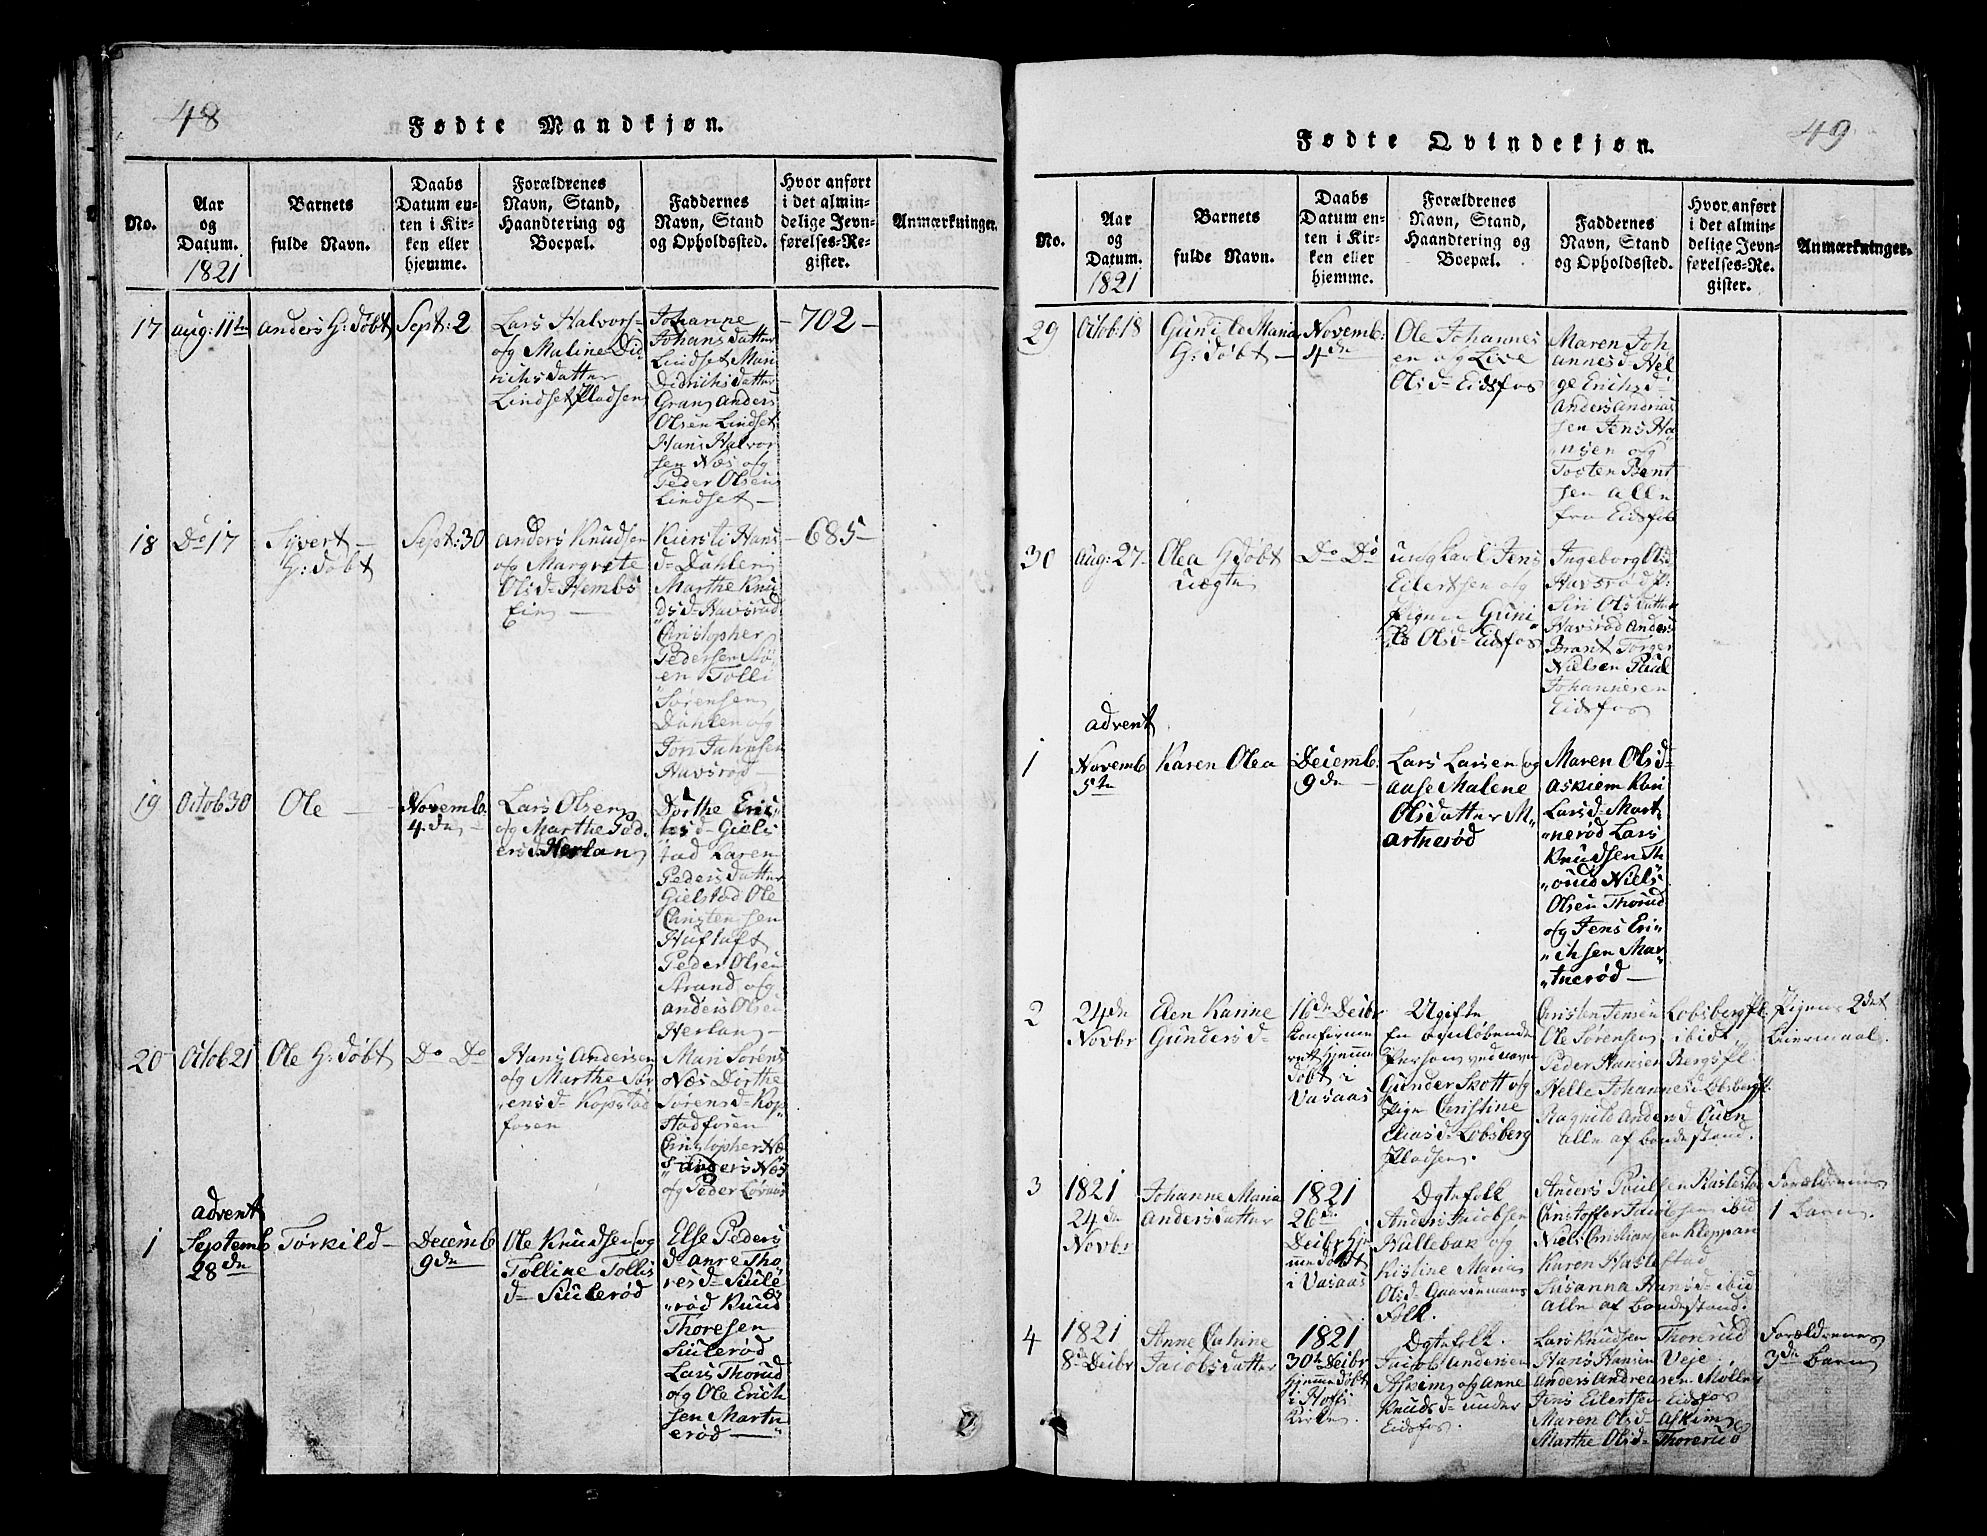 48
Fødte Mandkjøn.
No.
Aar
og
Datum.
1821
Barnets
fulde Navn.
Daabs
Datum en-
ten i Kir-
ken eller
hjemme.
Forældrenes
Navn, Stand,
Haandtering og
Boepæl.
Faddernes
Navn, Stand
og Opholdssted.
Hvor anført
i det almin-
delige Jevn-
førelses-Re-
gister.
Anmærkninger.
17
aug: 11te
anders H: døbt
Sept: 2
Lars Halvors-
og Maline Did
richsdatter
Lindset Pladsen
Johanne
Johansdatter
Lindset Mari
Didrichsdatter
Gran anders
Olsen Lindset
Hans Halvor
sen Næs og
Peder Olsen
Lindset -
- 702 -
18
Do 17
Syvert -
H: døbt
Sept: 30
anders Knudsen
og Margrete
Olsd- Hembs
Eie -
Kiersti Hans
d- Dahlen
Marthe Knu
dsd- Havsrud
Christopher
Pedersen Mø
en Tolli
Sørensen
Dahlen og
Havsrød -
- 685 -
19
Octob 30
Ole -
Novemb.
4de -
Lars Olsen
og Marthe Ped
ersd Herlan
Dorthe Eric
hsd- Giels
tad Karen
Pedersdatter
Gielstad Ole
Christensen
Huflaft
Peder Olsen
Strand og
anders Olsen
Herlan -
20
Octob 21
Ole H: døbt
Do Do
Hans Andersen
og Marthe Sør
ensd- Kopstad
fosen
Mari Sørens
Næs Dorthe
Sørensd- Kop
stadfosen
Christopher Næ
s anders Næs
og Peder
advent
1
Septemb
28de
Torkild -
Decemb
9de
Ole Knudsen og
Tolline Tollis
d- Siulerød
Else Peders
d- anne Tho
resd- Siule
rød Knud
Thoresen
Siulerød
Lars Thorud
og Ole Erich
sen Martn
erød -
49
Fødte Qvindekjøn.
No.
Aar
og
Datum.
1821
Barnets
fulde Navn.
Daabs
Datum en-
ten i Kir-
ken eller
hjemme.
Forældrenes
Navn, Stand,
Haandtering og
Boepæl.
Faddernes
Navn, Stand
og Opholdssted.
Hvor anført
i det almin-
delige Jevn-
førelses-Re-
gister.
Anmærkninger.
29
Octob 18
Gunile Maria
H: døbt -
Novemb:
4de
Ole Johannes
en og Live
Olsd- Eidsfos
Maren Joh
annesd- Hel
ge Erichsd-
Anders Andrias
sen Jens Ha
nsen og
Tosten Bent
sen alle
fra Eidsfos
30
aug: 27
Olea H døbt
Uægte
Do Do
ungkarl Jens
Eilertsen og
Pigen Guni
le Olsd- Eidsfos
Ingeborg Olsd
Havsrød
Siri Olsdatter
Havsrød Anders
Brant Torger
Nielsen Paul
Johannesen
Eidsfos
advent
1
Novemb
5te
Karen Olea
Decemb.
9de
Lars Larsen og
aase Malene
Olsdatter M-
artnerød
Maren Olsd-
askiem Kari
Larsd- Mart-
nerød Lars
Knudsen Th
orud Niels
Olsen Thorud
og Jens Eri-
chsen Mar-
tnerød -
2
24de
Novbr
Elen Karine
Gundersd-
16de Decbr
Konfirme
ret hjemme
døbt i
Vasaas
Ugifte
En omløbende
Person ved navn
Gunder Skott og
Pige Christine
Eliasd- Lobsberg
Pladsen.
Christen Jensen Lobsberg Pl.
Ole Sørensen ibid
Peder Hansen Bergs Pl.
Helle Johannesd Lobsberg Pl.
Ragnild Andersd Guen
alle af bondestand.
Pigens 2det
Leiermaal.
3
1821
24de
Novbr
Johanne Maria
Andersdatter
1821
26de
Decbr Hje
mmedøbt
i Vasaas
Ægtefolk
Anders Jacobsen
Hullebak og
Kistine Marias
Olsd- Gaardmans
Folk.
Anders Poulsen Haslestad
Christoffer Jacobsen ibid
Niels Christiansen Kleppan
Karen Haslestad
Susanna Hansd- ibid
alle af bondestand.
Forældrenes
1 Barn.
4
1821
8de Decbr
Anne Catrine
Jacobsdatter
1821
30te Decbr
Hjemmedøbt
i Hofs
Kirke.
Ægtefolk.
Jacob Andersen
Askim og Anne
Knudsd- under
Eidsfos.
Lars Knudsen Thorerud
Hans Hansen Veje
Anders Andreasen Mølle
Jens Eilertsen Eidsfos
Maren Olsd- Askim
Marthe Olsd- Thorerud
Forældrenes
3de Barn